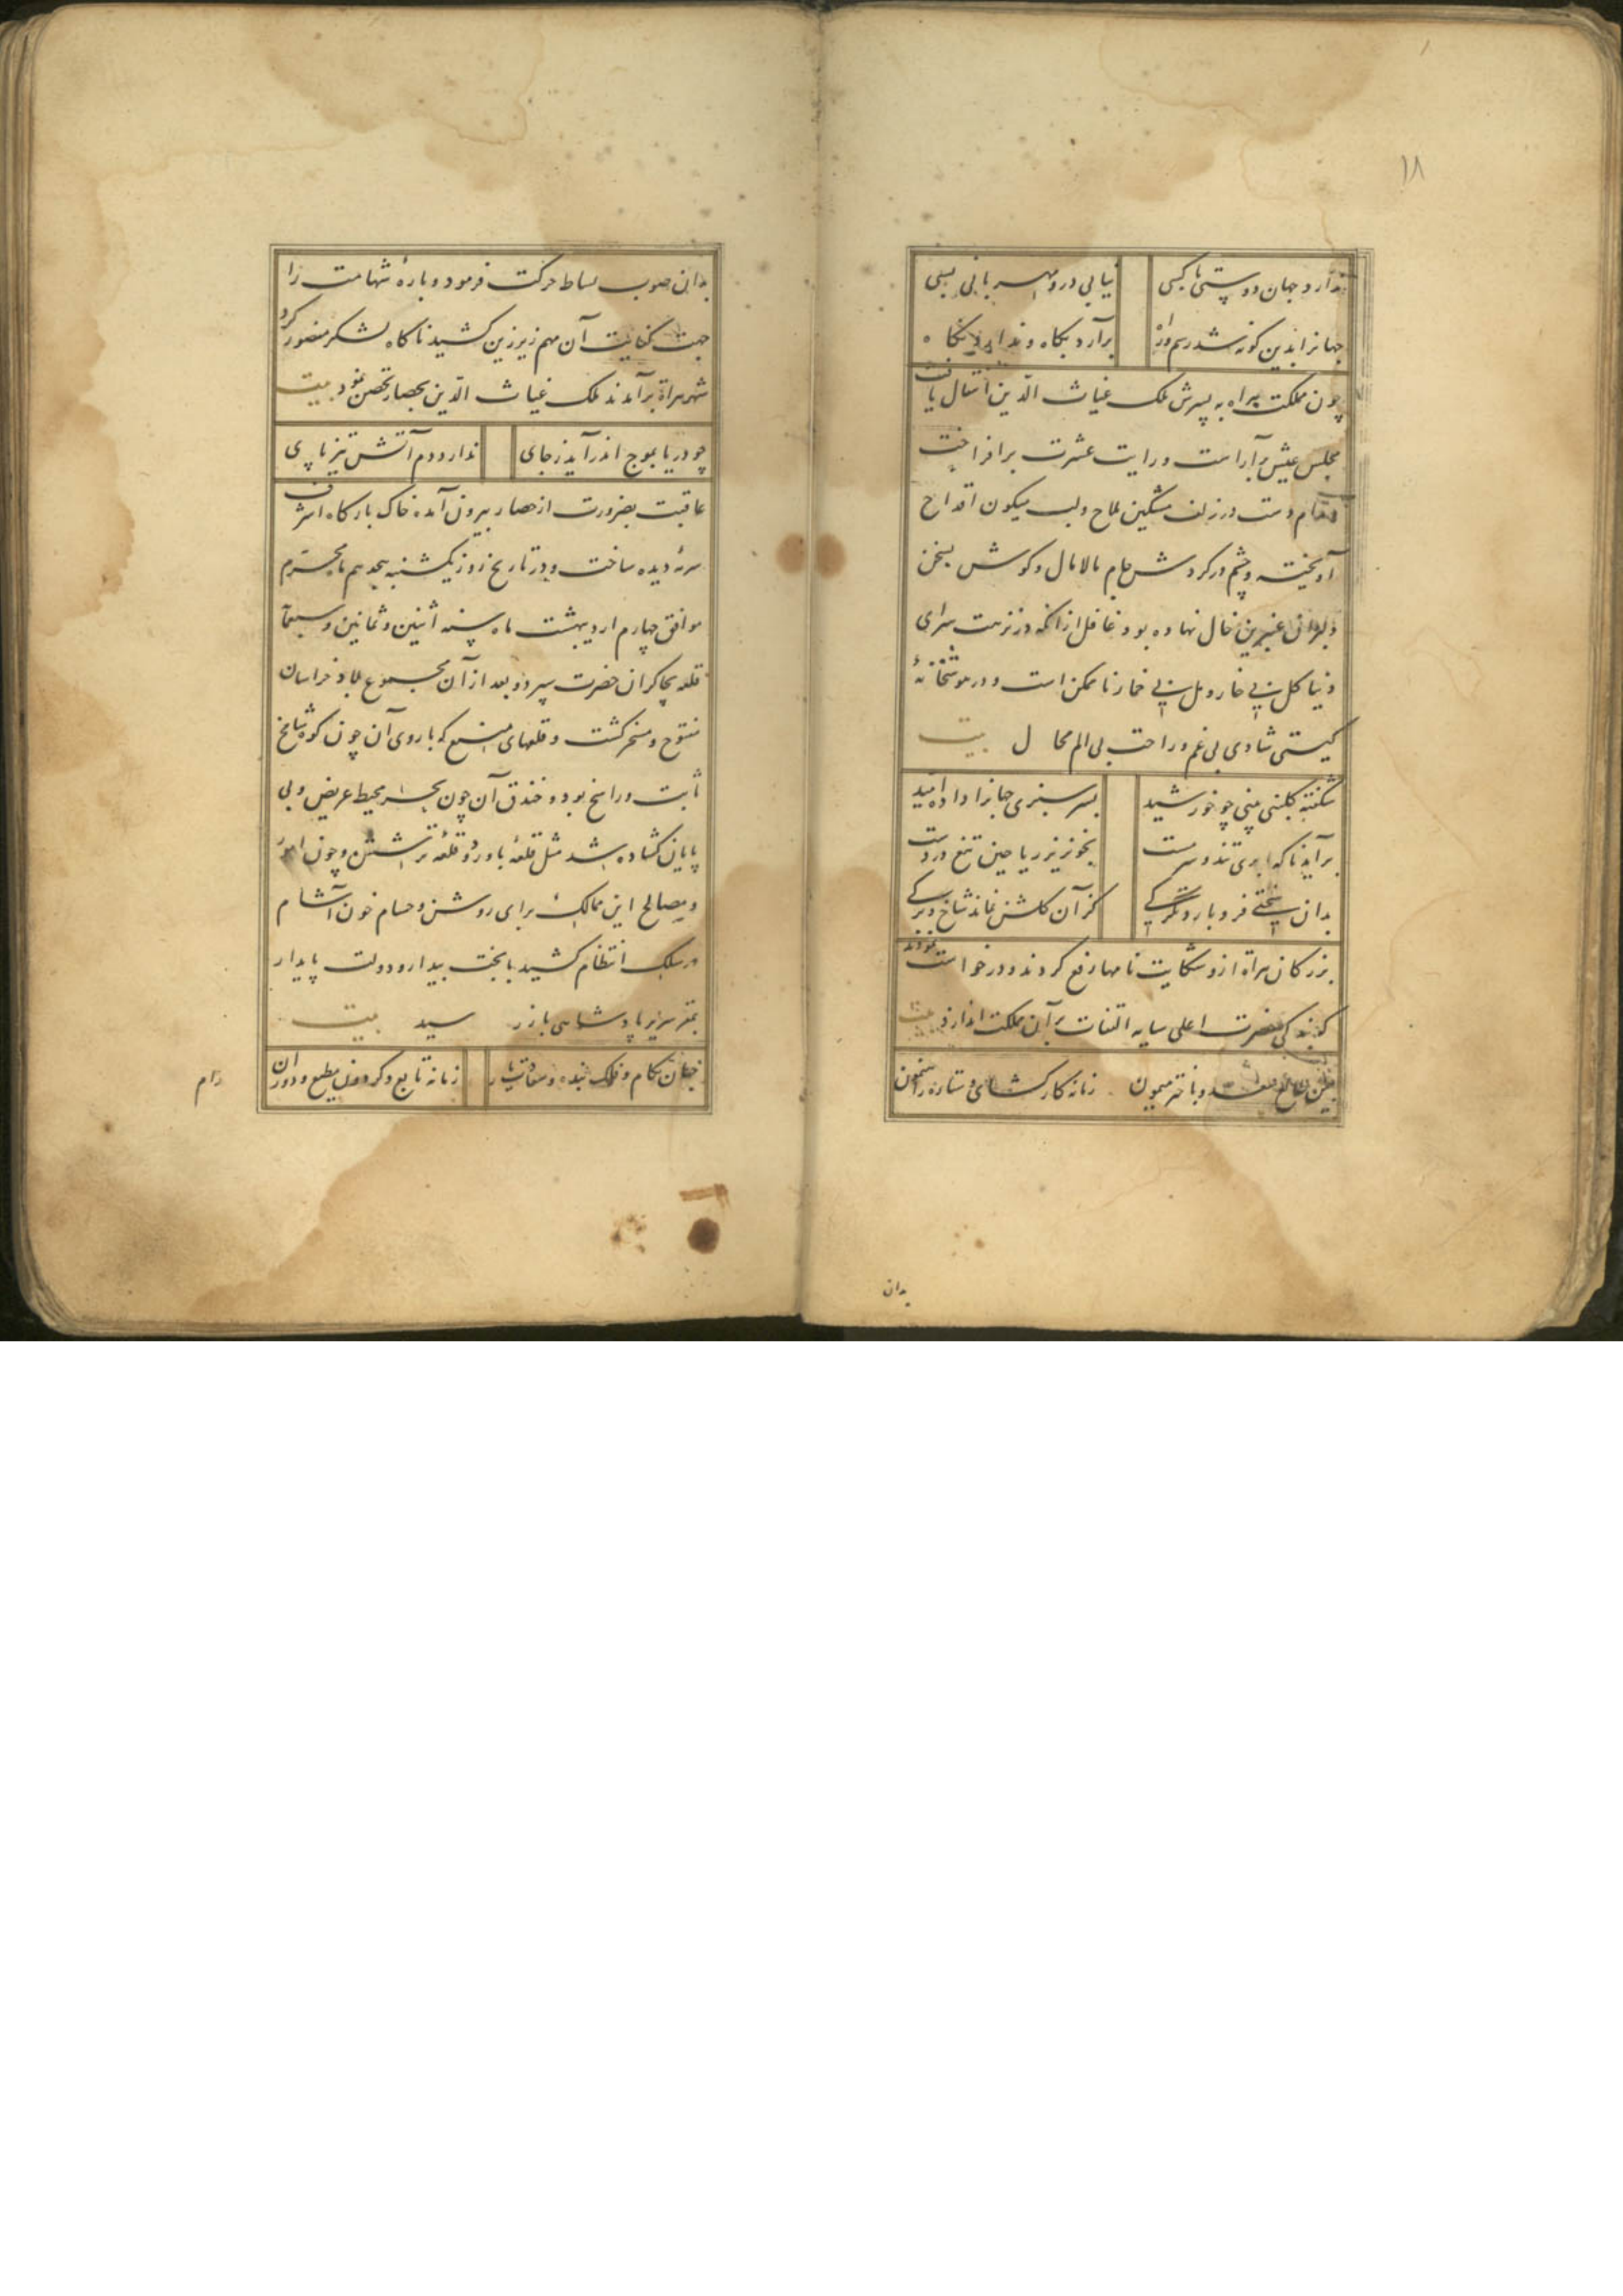 ۱۸
ندارد جهان دوستی با کسی نیابی درو مهربانی بسی
جهانرا بدین گونه شد رسم و راه برآرد بگاه و ندارد نگاه
چون مملکت هراه به پسرش ملک غیاث الدین انتقال یافت
مجلس عیش برآراست و رایت عشرت برافراخت
مدام دست در زلف مشکین ملاح و لب میگون اقداح
آویخته و چشم در گردش جام مالامال و گوش بسخن
دلبران عنبرین خال نهاده بود غافل ازانکه در نزهت سرای
دنیا گل بی خار و مل بی خمار ناممکن است و در موشخانهٔ
گیتی شادی بی غم و راحت بی الم محال بیت
شکفته گلبنی بینی چو خورشید بسرسبزی جهانرا داده امید
برآید ناگه ابری تند و سرمست بخونریز ریاحین تیغ در دست
بدان سختی فرو بارد تگرگی کزان گلشن نماند شاخ و برگی
بزرگان هراة ازو شکایت نامها رفع کردند و درخواست نمودند
که بندگی حضرت اعلی سایه التفات بر آن مملکت اندازد بیت
طالع سعد و باختر میمون زمانه کارگشای و ستاره راهنمون
بدان
بدان صوب بساط حرکت فرمود و بارهٔ شهامت را
جهت کفایت آن مهم زیر زین کشید ناگاه لشکر منصور گرد
شهر هراة برآمدند ملک غیاث الدین بحصار تحصن نمود بیت
چو دریا بموج اندر آید زجای ندارد دم آتش تیز پای
عاقبت بضرورت از حصار بیرون آمده خاک بارگاه اشرف
سرمهٔ دیده ساخت و در تاریخ روز یکشنبه هجدهم ماه محرم
موافق چهارم اردیبهشت ماه سنه اثنین و ثمانین و سبعمآ
قلعه بچاکران حضرت سپرد و بعد از آن مجموع بلاد خراسان
مفتوح و مسخر گشت و قلعهای منیع که باروی آن چون کوه شامخ
ثابت و راسخ بود و خندق آن چون بحر محیط عریض و بی
پایان گشاده شد مثل قلعهٔ باورد و قلعه ترشیش و چون امور
و مصالح این ممالک برای روشن و حسام خون آشام
در سلک انتظام کشید با بخت بیدار و دولت پایدار
بمقر سریر پادشاهی باز رسید بیت
جهان بکام و فلک بنده و سعادت یار زمانه تابع و گردون مطیع و دوران
رام